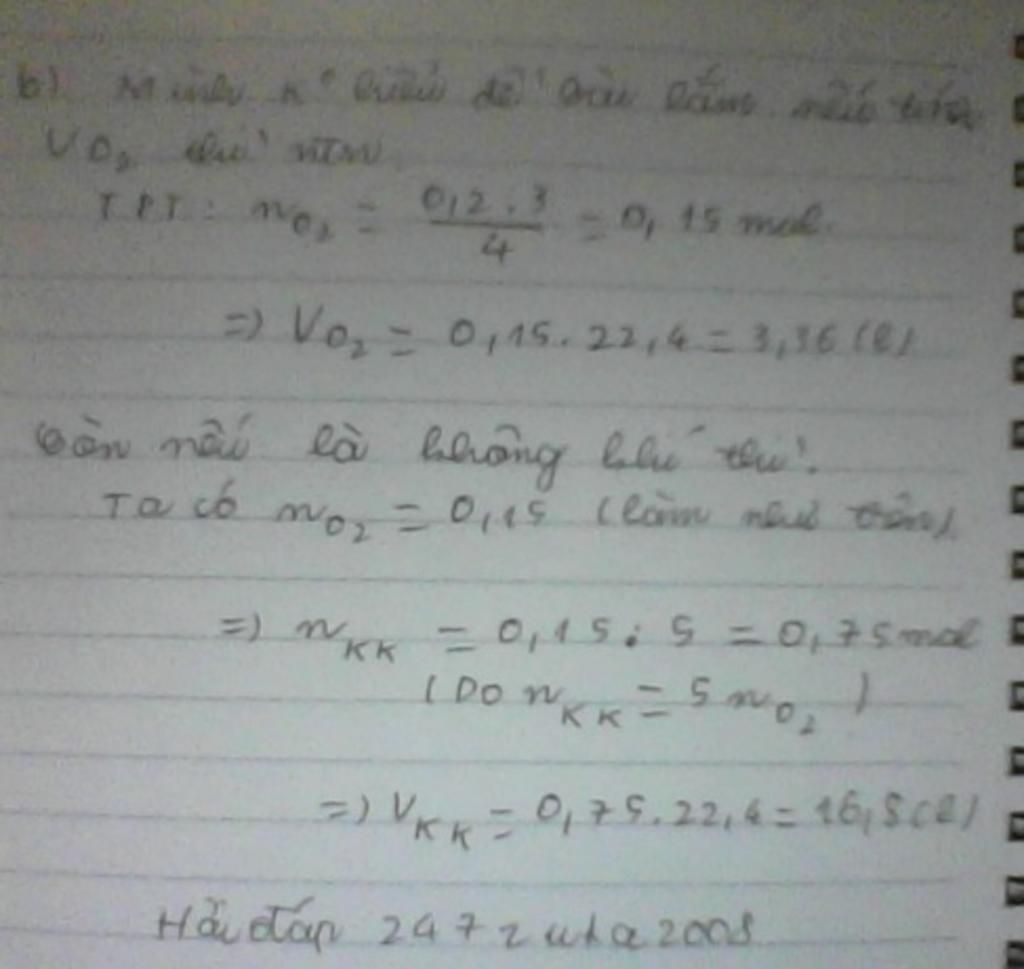 b) Mình k° hiểu đề bài lắm nếu tính
VO₂ thì ntn
TPT: nO₂ = 0,2.3/4 = 0,15 mol.
=) VO₂ = 0,15.22,4 = 3,36 (l)
Còn nếu là không khí thì:
Ta có nO₂ = 0,15 (làm như trên)
=) nKK = 0,15:5 = 0,75mol
(Do nKK = 5nO₂)
=) VKK = 0,75.22,4 = 16,8(l)
Hỏi đáp 247